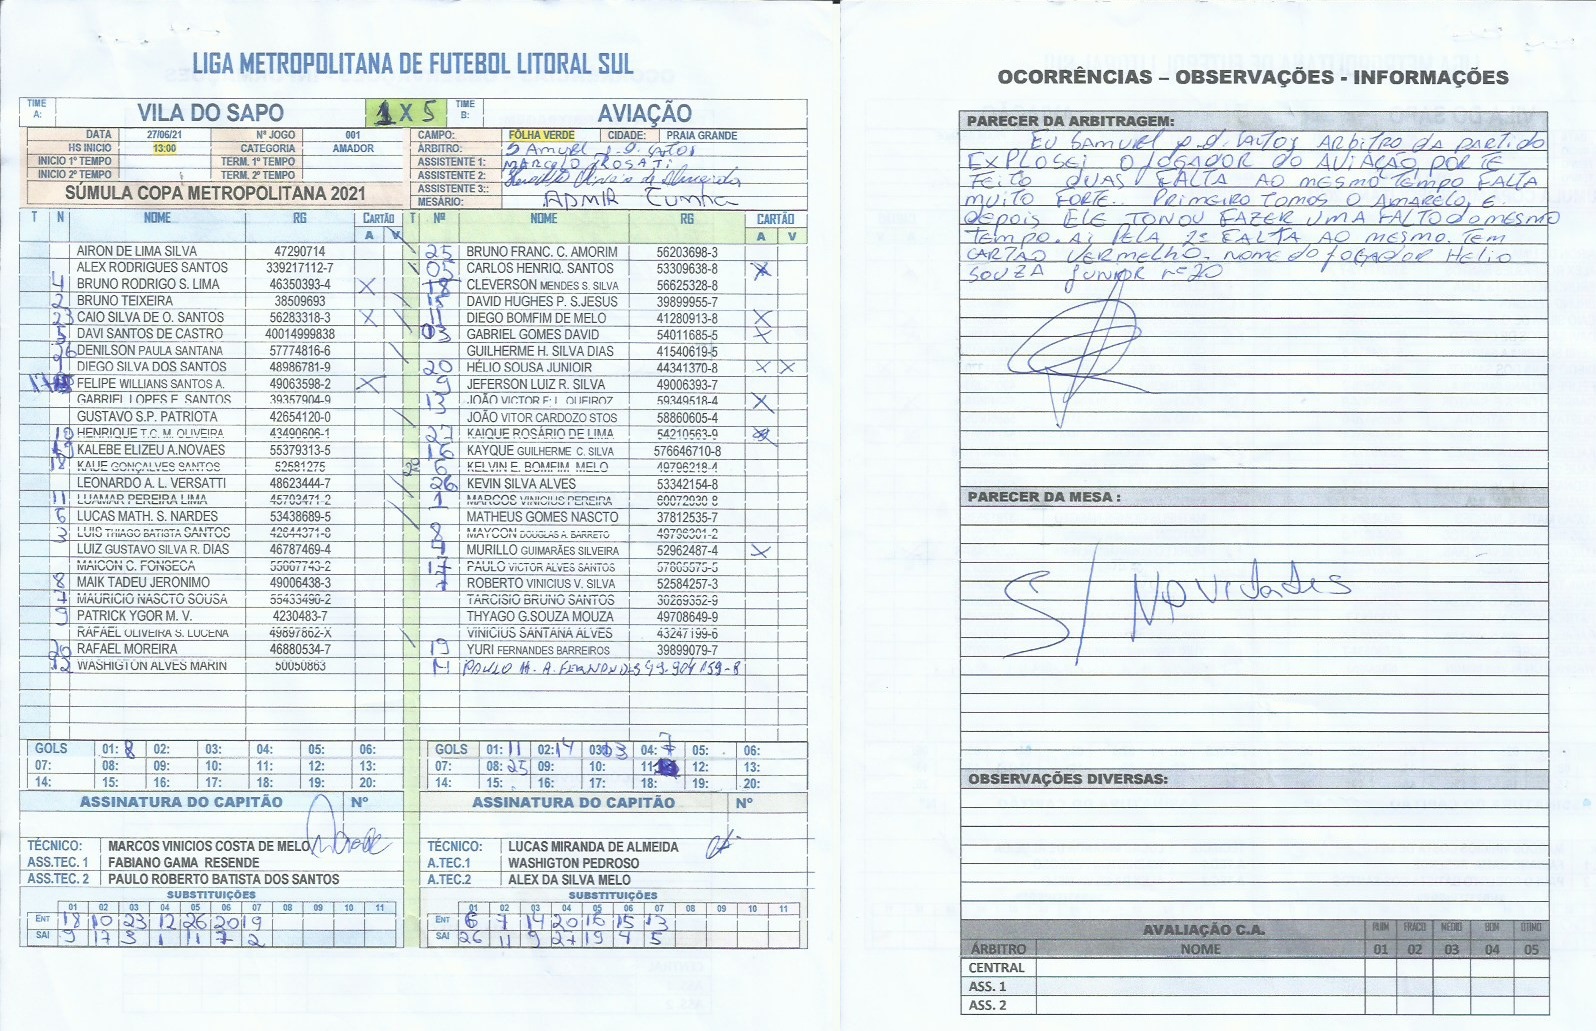 LIGA METROPOLITANA DE FUTEBOL LITORAL SUL
TIME A: VILA DO SAPO 1 X 5 TIME B: AVIAÇÃO
DATA 27/06/21 Nº JOGO 001 CAMPO: FÔLHA VERDE CIDADE: PRAIA GRANDE
HS INICIO 13:00 CATEGORIA AMADOR ÁRBITRO: Samuel
INICIO 1º TEMPO TERM. 1º TEMPO ASSISTENTE 1: MARCELO ROSATI
INICIO 2º TEMPO TERM. 2º TEMPO ASSISTENTE 2:
SÚMULA COPA METROPOLITANA 2021 ASSISTENTE 3::
MESÁRIO: ADMIR CUNHA
T N NOME RG CARTÃO T Nº NOME RG CARTÃO
A V A V
AIRON DE LIMA SILVA 47290714 25 BRUNO FRANC. C. AMORIM 56203698-3
ALEX RODRIGUES SANTOS 339217112-7 05 CARLOS HENRIQ. SANTOS 53309638-8 X
4 BRUNO RODRIGO S. LIMA 46350393-4 X 18 CLEVERSON MENDES S. SILVA 56625328-8
2 BRUNO TEIXEIRA 38509693 15 DAVID HUGHES P. S.JESUS 39899955-7
23 CAIO SILVA DE O. SANTOS 56283318-3 X 11 DIEGO BOMFIM DE MELO 41280913-8 X
5 DAVI SANTOS DE CASTRO 40014999838 03 GABRIEL GOMES DAVID 54011685-5 X
26 DENILSON PAULA SANTANA 57774816-6 GUILHERME H. SILVA DIAS 41540619-5
1 DIEGO SILVA DOS SANTOS 48986781-9 20 HÉLIO SOUSA JUNIOIR 44341370-8 X X
17 FELIPE WILLIANS SANTOS A. 49063598-2 X 9 JEFERSON LUIZ R. SILVA 49006393-7
GABRIEL LOPES F. SANTOS 39357904-9 13 JOÃO VICTOR F. L. QUEIROZ 59349518-4 X
GUSTAVO S.P. PATRIOTA 42654120-0 JOÃO VITOR CARDOZO STOS 58860605-4
10 HENRIQUE T.C. M. OLIVEIRA 43490606-1 27 KAIQUE ROSÁRIO DE LIMA 54210563-9 X
19 KALEBE ELIZEU A.NOVAES 55379313-5 16 KAYQUE GUILHERME C. SILVA 576646710-8
18 KAUE GONÇALVES SANTOS 52581275 6 KELVIN E. BOMFIM. MELO 49796218-4
LEONARDO A. L. VERSATTI 48623444-7 26 KEVIN SILVA ALVES 53342154-8
11 LUAMAR PEREIRA LIMA 45703471-2 1 MARCOS VINICIUS PEREIRA 60072930-8
6 LUCAS MATH. S. NARDES 53438689-5 MATHEUS GOMES NASCTO 37812535-7
3 LUIS THIAGO BATISTA SANTOS 42644371-8 8 MAYCON DOUGLAS A. BARRETO 49796301-2
LUIZ GUSTAVO SILVA R. DIAS 46787469-4 4 MURILLO GUIMARÃES SILVEIRA 52962487-4 X
MAICON C. FONSECA 55667743-2 17 PAULO VICTOR ALVES SANTOS 57865575-5
8 MAIK TADEU JERONIMO 49006438-3 7 ROBERTO VINICIUS V. SILVA 52584257-3
7 MAURICIO NASCTO SOUSA 55433490-2 TARCISIO BRUNO SANTOS 30269352-9
9 PATRICK YGOR M. V. 4230483-7 THYAGO G.SOUZA MOUZA 49708649-9
RAFAEL OLIVEIRA S. LUCENA 49697862-X VINICIUS SANTANA ALVES 43247199-6
20 RAFAEL MOREIRA 46880534-7 19 YURI FERNANDES BARREIROS 39899079-7
12 WASHIGTON ALVES MARIN 50050863 14 PAULO H. A. FERNANDES 49.904159-8
GOLS 01: 8 02: 03: 04: 05: 06: GOLS 01: 11 02: 14 03: 13 04: 7 05: 06:
07: 08: 09: 10: 11: 12: 13: 07: 08: 25 09: 10: 11: 12: 13:
14: 15: 16: 17: 18: 19: 20: 14: 15: 16: 17: 18: 19: 20:
ASSINATURA DO CAPITÃO Nº ASSINATURA DO CAPITÃO Nº
TÉCNICO: MARCOS VINICIOS COSTA DE MELO TÉCNICO: LUCAS MIRANDA DE ALMEIDA
ASS.TEC. 1 FABIANO GAMA RESENDE A.TEC.1 WASHIGTON PEDROSO
ASS.TEC. 2 PAULO ROBERTO BATISTA DOS SANTOS A.TEC.2 ALEX DA SILVA MELO
SUBSTITUIÇÕES SUBSTITUIÇÕES
01 02 03 04 05 06 07 08 09 10 11 01 02 03 04 05 06 07 08 09 10 11
ENT 18 10 23 12 26 20 19 ENT 6 7 14 20 16 15 13
SAI 9 17 3 1 11 7 2 SAI 26 11 9 27 19 4 5
OCORRÊNCIAS – OBSERVAÇÕES - INFORMAÇÕES
PARECER DA ARBITRAGEM:
EU SAMUEL ARBITRO DA PARTIDO
EXPLOSEI O JOGADOR DO AVIAÇÃO, POR TE
FEITO DUAS FALTA AO MESMO TEMPO FALTA
MUITO FORTE. PRIMEIRO TOMOS O AMARELO, E
DEPOIS ELE TONOU FAZER UMA FALTO DO MESMO
TEMPO. AI PELA 2º FALTA AO MESMO. TEM
CARTÃO VERMELHO. NOME DO JOGADOR HELIO
SOUZA JUNIOR Nº 20
PARECER DA MESA :
S/ Novidades
OBSERVAÇÕES DIVERSAS:
AVALIAÇÃO C.A. RUIM FRACO MEDIO BOM OTIMO
ÁRBITRO NOME 01 02 03 04 05
CENTRAL
ASS. 1
ASS. 2